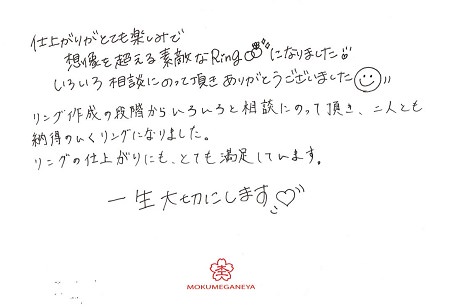 仕上がりがとても楽しみで
想像を超える素敵なRingになりました
いろいろ相談にのって頂きありがとうございました
リング作成の段階からいろいろと相談にのって頂き、二人とも
納得のいくリングになりました。
リングの仕上がりにも、とても満足しています。
一生大切にします♡
MOKUMEGANEYA